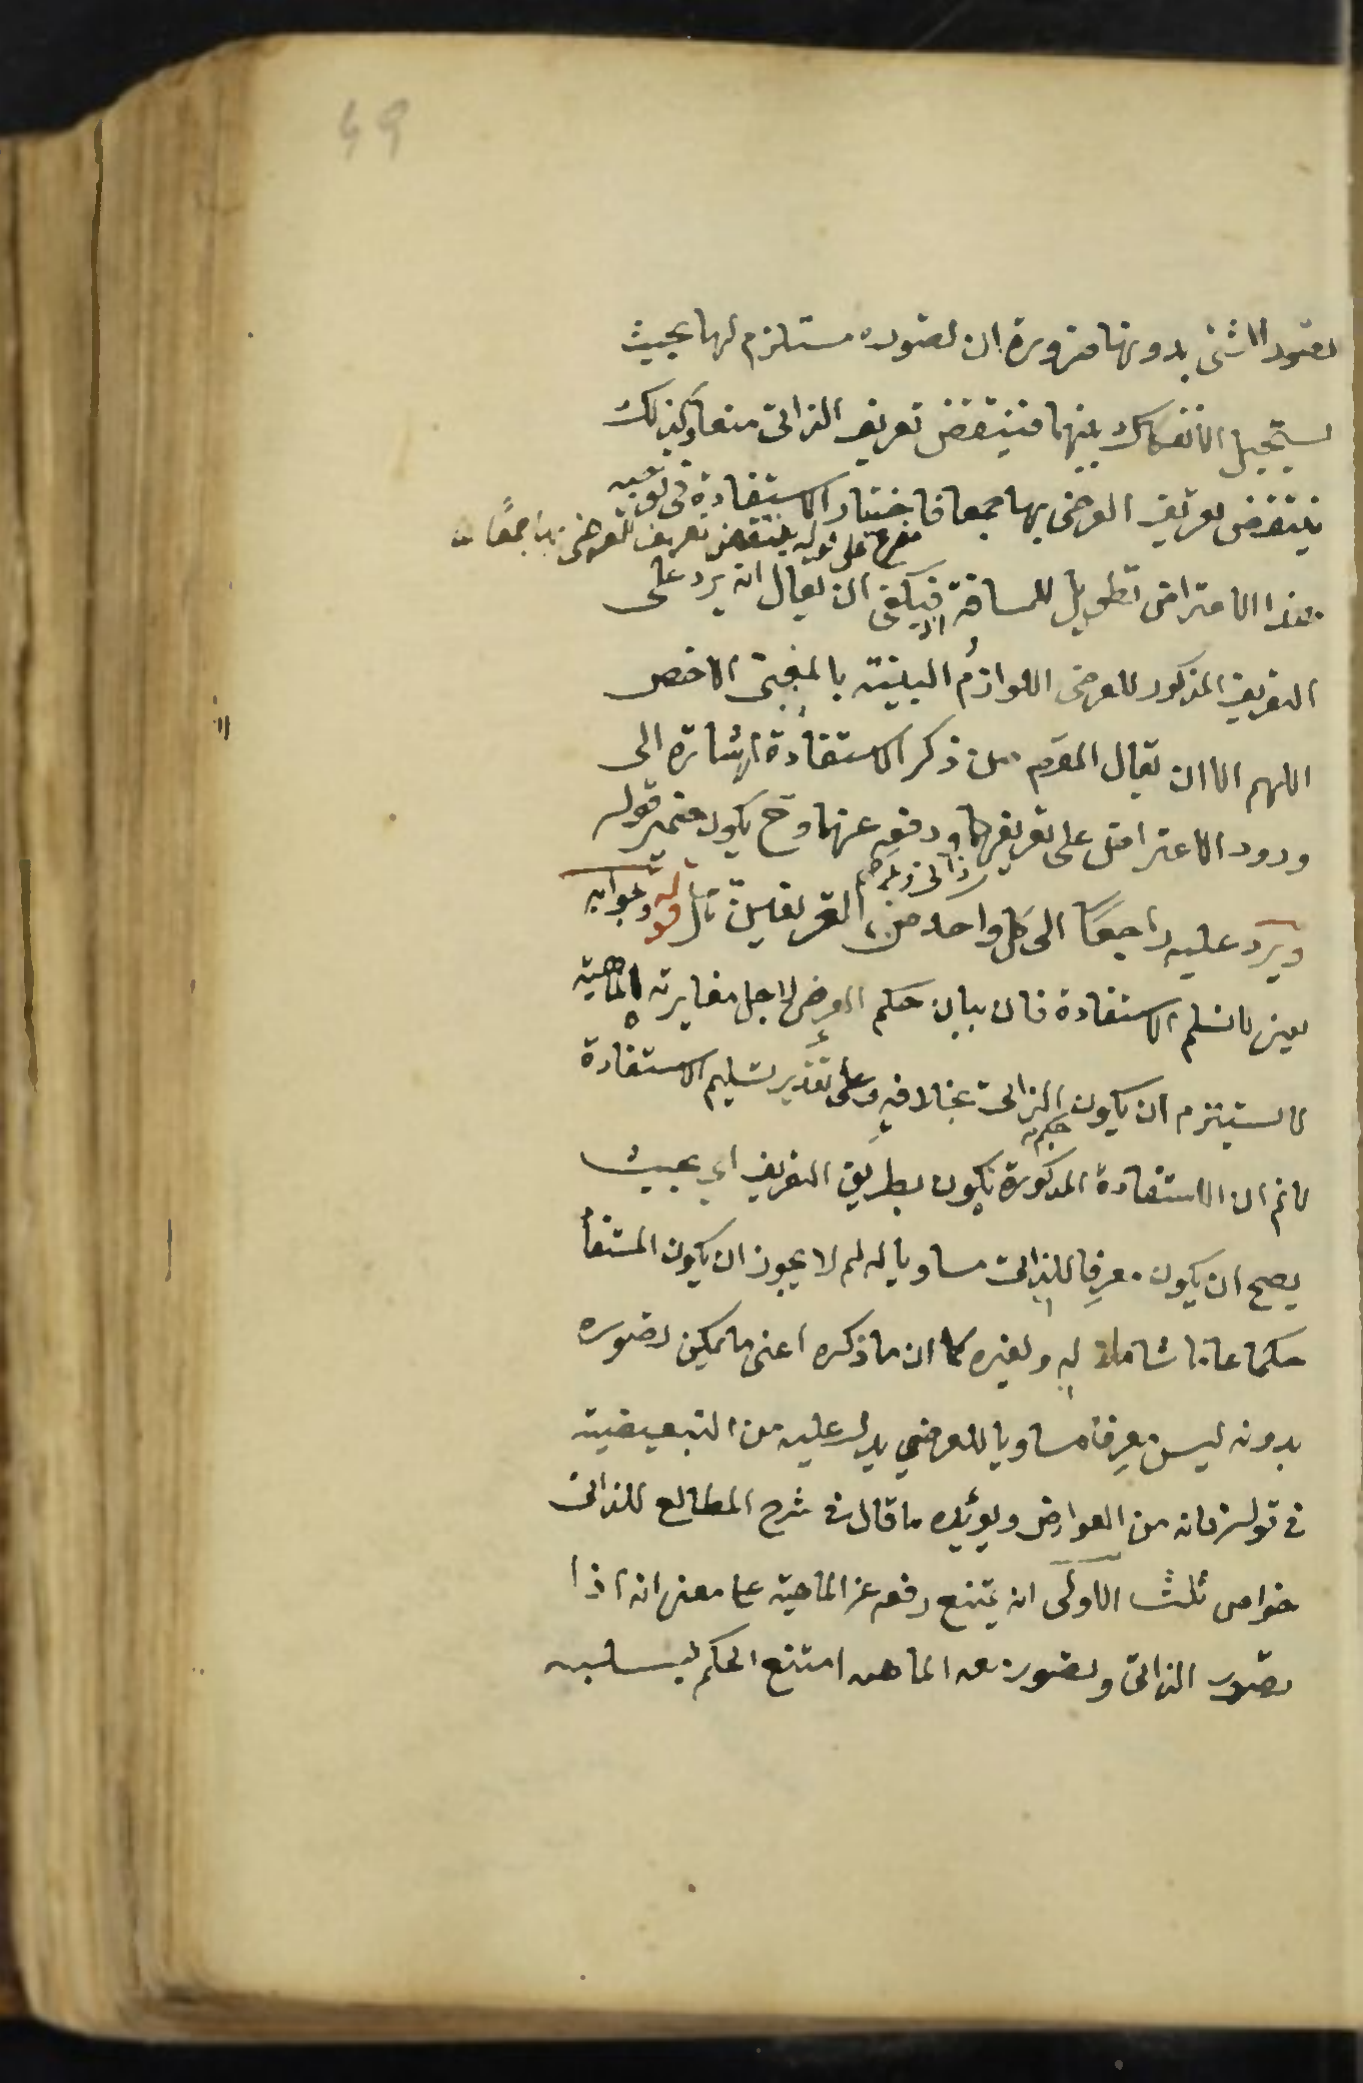 49
تصور الاثنى بدونها ضرورة ان تصوره مستلزم لها بحيث
يستحيل الانفكاك بينهما فينتقض تعريف الذاتى منعا وكذلك
ينتقض تعريف العرضى بها جمعا فاختيار الاستفادة فى توجيه
متفرع على قوله ينتقض تعريف العرضى بها جمعًا
هذا الاعتراض تطويل للمسافة اذ يكفى ان يقال انه يرد على
التعريف المذكور للعرضى اللوازمُ البينة بالمعنى الاخص
اللهم الا ان يقال المقصم من ذكر الاستفادة اشارة الى
ورود الاعتراض على تعريفهما ودفعه عنهما وح يكون ضمير قوله
ذاتى وعرضى
ويرد عليه راجعًا الى كل واحد من التعريفين تأمل قوله وجوابه
يعنى لا نسلم الاستفادة فان بيان حكم العرضى لاجل مغايرته الماهية
لا يستلزم ان يكون الذاتى بخلافه وعلى تقدير تسليم الاستفادة
حكم
لا نم ان الاستفادة المذكورة يكون بطريق التعريف اى بحيث
يصح ان يكون معرفا للذاتى مساويا له لم لا يجوز ان يكون المستفاد
حكما عاما شاملا له ولغيره كما ان ما ذكره اعنى ما يمكن تصوره
بدونه ليس معرفا مساويا للعرضي يدل عليه من التبعيضية
فى قوله فانه من العوارض ويؤيده ما قال فى شرح المطالع للذاتى
خواص ثلث الاولى ان يمتنع رفعه عن الماهية على معنى انه اذا
تصور الذاتى وتصور معه الماهية امتنع الحكم بسلبه